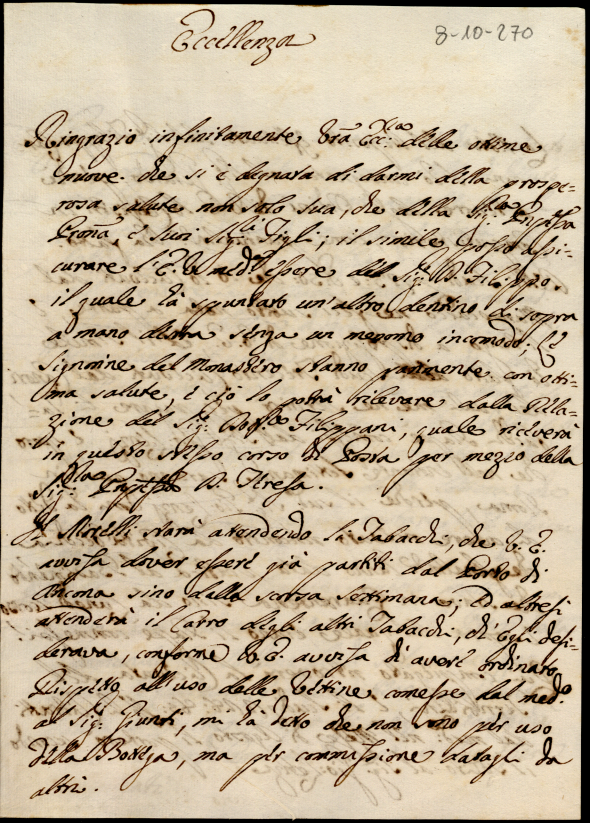 Eccellenza
8-10-270
Ringrazio infinitamente Vrã Ecc.za delle ottime
nuove che si è degnata di darmi della prospe=
rosa salute non solo sua, che della Sig.ra Pnp̃essa
Pronã, e suoi Sig.ri Figli; il simile posso assi=
curare l'E. V. med.ma essere del Sig.r D. Filippo.
il quale hà spuntato un'altro dentino di sopra
a mano destra senza un menomo incomodo; Le
Signorine del Monastero stanno parimente con otti=
ma salute, e ciò lo potrà rilevare dalla Rela=
zione del Sig.r Dott.re Filippani, quale riceverà
in questo stesso corso di Posta per mezzo della
Sig.ra Pnp̃essa D. Teresa.
Il Mirelli starà attendendo li Tabacchi, che V. E.
avvisa dover essere già partiti dal Porto di
Ancona sino dalla scorsa settimana; Ed altresi
attenderà il Carro degli altri Tabacchi, ch'Egli desi=
derava, conforme V. E. avvisa d'avere ordinato
Rispetto all'uso delle Vettine comesse dal med.o
al Sig.r Giunti, mi hà detto che non sono per uso
della Bottega, ma per commissione datagli da
altri.